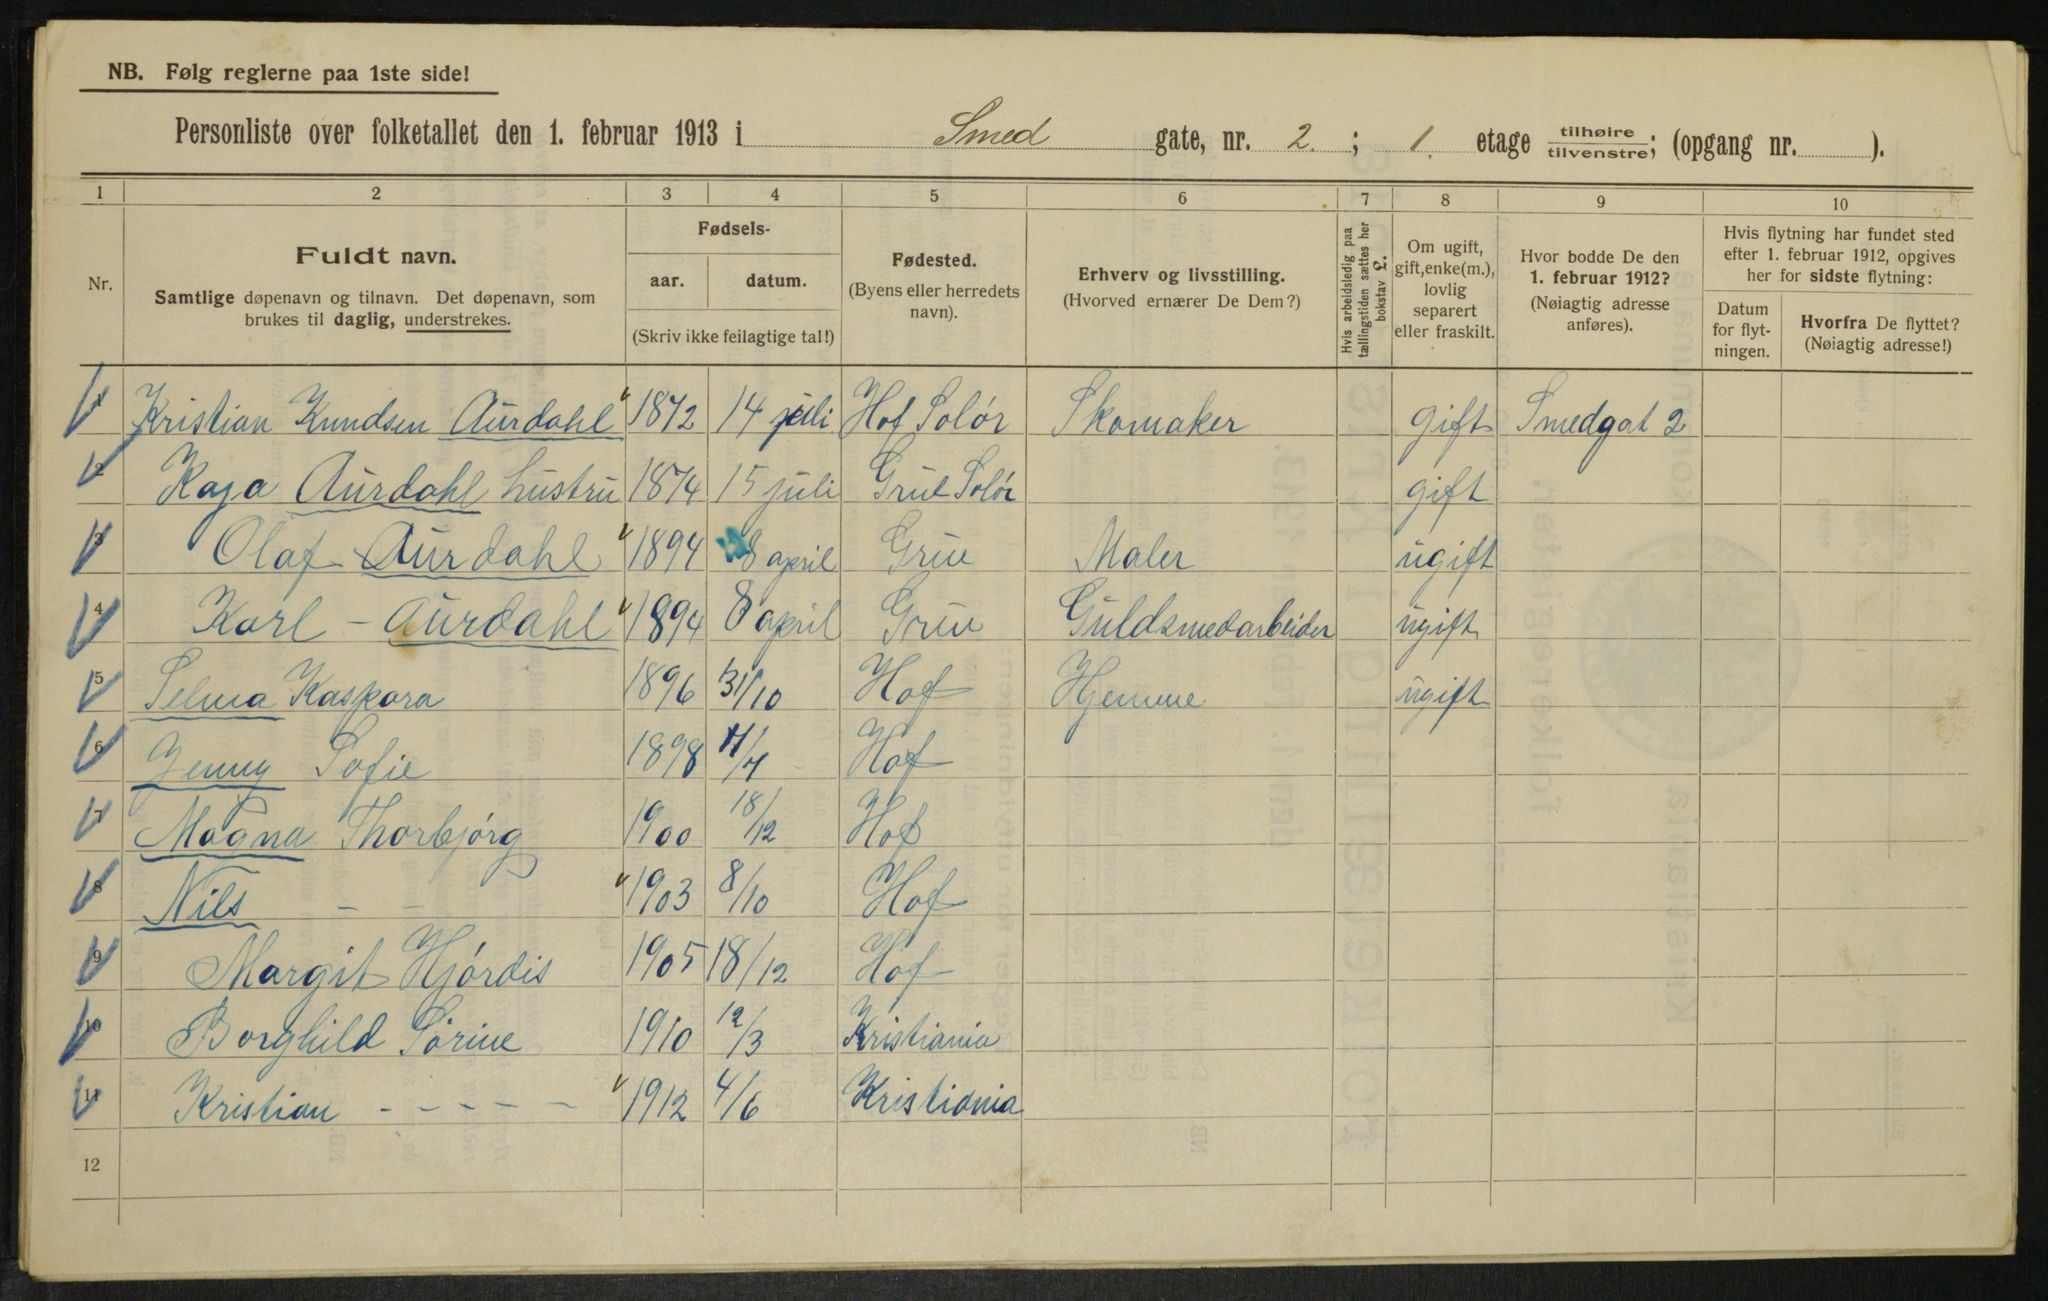 NB. Følg reglerne paa 1ste side!
Personliste over folketallet den 1. februar 1913 i Smed gate, nr. 2. ; 1. etage tilhøire/tilvenstre; (opgang nr. ).
1 2 3 4 5 6 7 8 9 10
Nr.
Fuldt navn.
Samtlige døpenavn og tilnavn. Det døpenavn, som
brukes til daglig, understrekes.
Fødsels-
aar. datum.
(Skriv ikke feilagtige tal!)
Fødested.
(Byens eller herredets
navn).
Erhverv og livsstilling.
(Hvorved ernærer De Dem?)
Hvis arbeidsledig paa
tællingstiden sættes her
bokstav L.
Om ugift,
gift, enke(m.),
lovlig
separert
eller fraskilt.
Hvor bodde De den
1. februar 1912?
(Nøiagtig adresse
anføres).
Hvis flytning har fundet sted
efter 1. februar 1912, opgives
her for sidste flytning:
Datum
for flyt-
ningen.
Hvorfra De flyttet?
(Nøiagtig adresse!)
1 Kristian Knudsen Aurdahl 1872 14 juli Hof Solör Skomaker gift Smedgat 2
2 Kaja Aurdahl hustru 1874 15 juli Grue Solör gift
3 Olaf Aurdahl 1894 8 april Grue Maler ugift
4 Karl - Aurdahl 1894 8 april Grue Guldsmedarbeider ugift
5 Selma Kaspara 1896 31/10 Hof Hjemme ugift
6 Jenny Sofie 1898 Hof
7 Magna Thorbjörg 1900 18/12 Hof
8 Nils - - 1903 8/10 Hof
9 Margit Hjördis 1905 18/12 Hof
10 Borghild Sörine 1910 12/3 Kristiania
11 Kristian - - - - - 1912 4/6 Kristiania
12